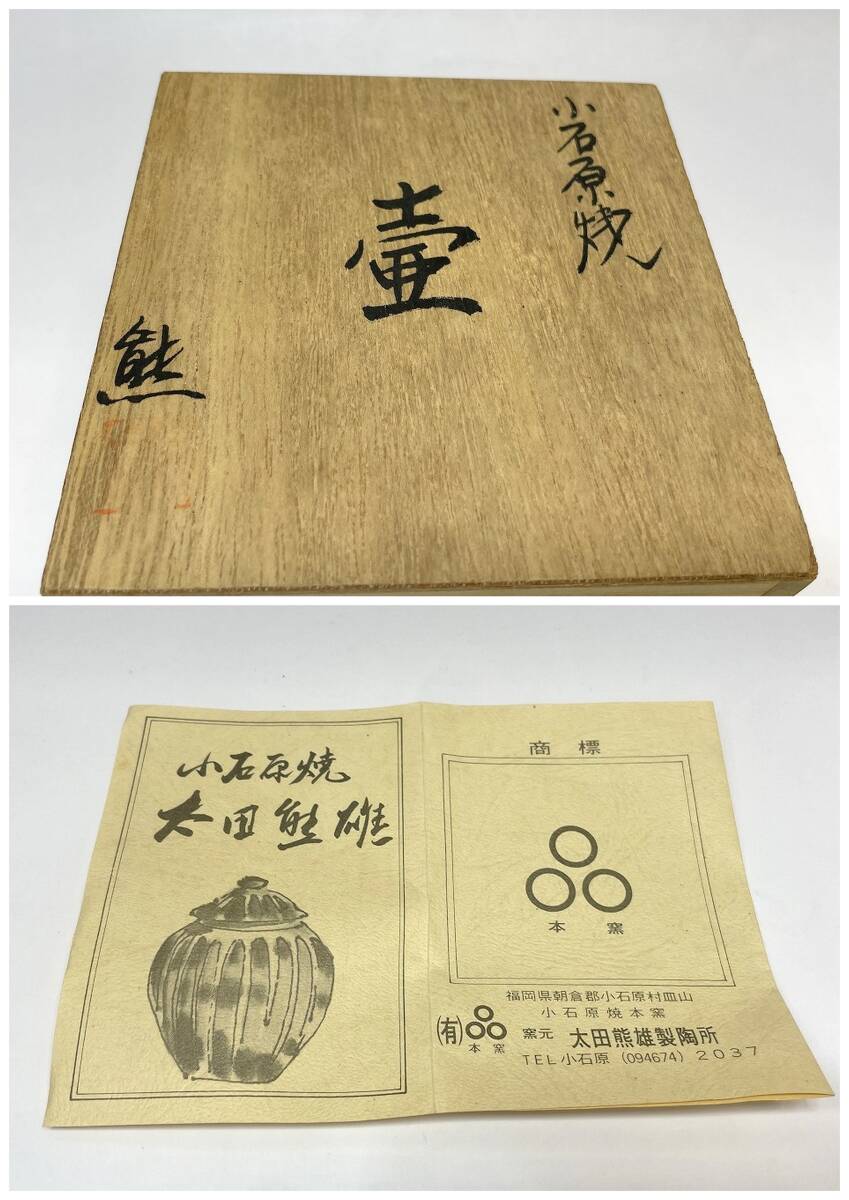 小石原焼
壷
熊
小石原焼
太田熊雄
商標
本窯
福岡県朝倉郡小石原村皿山
小石原焼本窯
㈲ 本窯 窯元 太田熊雄製陶所
TEL小石原(094674)2037